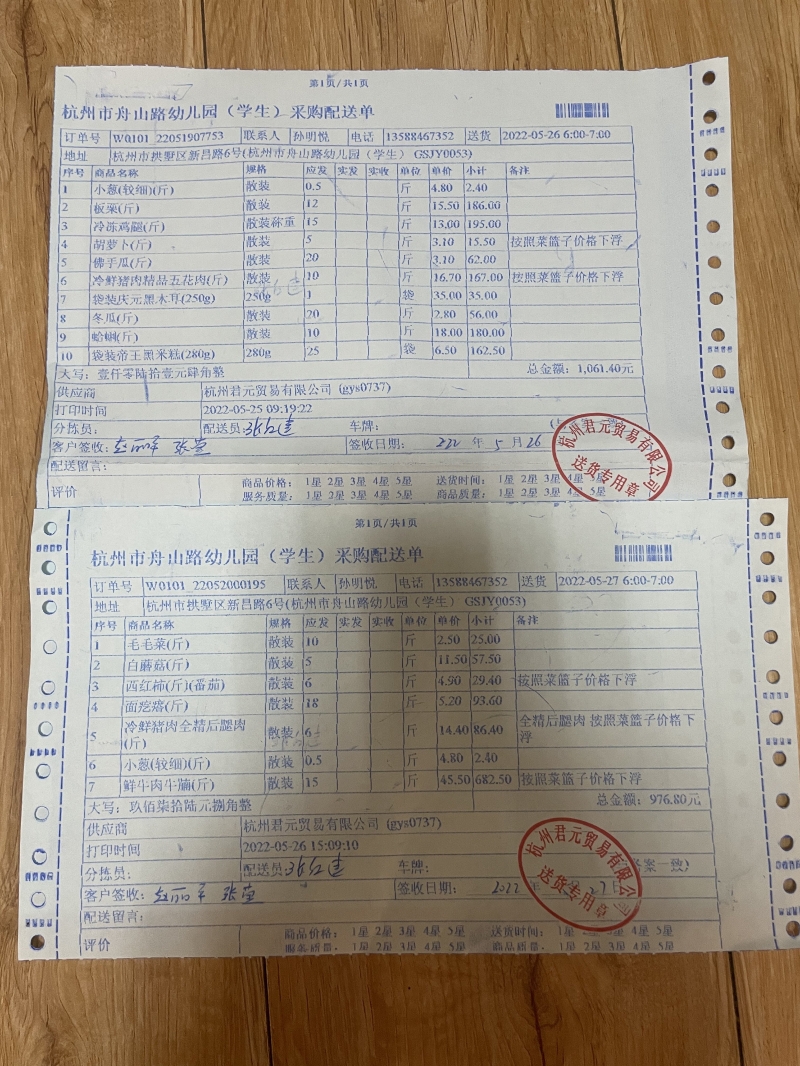 第1页/共1页
杭州市舟山路幼儿园（学生）采购配送单
订单号 W0101_22051907753 联系人 孙明悦 电话 13588467352 送货 2022-05-26 6:00-7:00
地址 杭州市拱墅区新昌路6号(杭州市舟山路幼儿园（学生） GSJY0053)
序号 商品名称 规格 应发 实发 实收 单位 单价 小计 备注
1 小葱(较细)(斤) 散装 0.5 斤 4.80 2.40
2 板栗(斤) 散装 12 斤 15.50 186.00
3 冷冻鸡腿(斤) 散装称重 15 斤 13.00 195.00
4 胡萝卜(斤) 散装 5 斤 3.10 15.50 按照菜篮子价格下浮
5 佛手瓜(斤) 散装 20 斤 3.10 62.00
6 冷鲜猪肉精品五花肉(斤) 散装 10 斤 16.70 167.00 按照菜篮子价格下浮
7 袋装庆元黑木耳(250g) 250g 1 袋 35.00 35.00
8 冬瓜(斤) 散装 20 斤 2.80 56.00
9 蛤蜊(斤) 散装 10 斤 18.00 180.00
10 袋装帝王黑米糕(280g) 280g 25 袋 6.50 162.50
大写：壹仟零陆拾壹元肆角整 总金额：1,061.40元
供应商 杭州君元贸易有限公司 (gys0737)
打印时间 2022-05-25 09:19:22
分拣员: 配送员: 张红建 车牌:
客户签收: 签收日期: 222 年 5 月 26
配送留言:
评价 商品价格: 1星 2星 3星 4星 5星 送货时间: 1星 2星 3星 4星 5星
服务质量: 1星 2星 3星 4星 5星 商品质量: 1星 2星 3星 4星 5星
杭州君元贸易有限公司
送货专用章
第1页/共1页
杭州市舟山路幼儿园（学生）采购配送单
订单号 W0101_22052000195 联系人 孙明悦 电话 13588467352 送货 2022-05-27 6:00-7:00
地址 杭州市拱墅区新昌路6号(杭州市舟山路幼儿园（学生） GSJY0053)
序号 商品名称 规格 应发 实发 实收 单位 单价 小计 备注
1 毛毛菜(斤) 散装 10 斤 2.50 25.00
2 白蘑菇(斤) 散装 5 斤 11.50 57.50
3 西红柿(斤)(番茄) 散装 6 斤 4.90 29.40 按照菜篮子价格下浮
4 面疙瘩(斤) 散装 18 斤 5.20 93.60
5 冷鲜猪肉全精后腿肉(斤) 散装 6 斤 14.40 86.40 全精后腿肉 按照菜篮子价格下浮
6 小葱(较细)(斤) 散装 0.5 斤 4.80 2.40
7 鲜牛肉牛腩(斤) 散装 15 斤 45.50 682.50 按照菜篮子价格下浮
大写：玖佰柒拾陆元捌角整 总金额：976.80元
供应商 杭州君元贸易有限公司 (gys0737)
打印时间 2022-05-26 15:09:10
分拣员: 配送员: 张红建 车牌: 备案一致)
客户签收: 签收日期: 2022 年 27 日
配送留言:
评价 商品价格: 1星 2星 3星 4星 5星 送货时间: 1星 2星 3星 4星 5星
服务质量: 1星 2星 3星 4星 5星 商品质量: 1星 2星 3星 4星 5星
杭州君元贸易有限公司
送货专用章